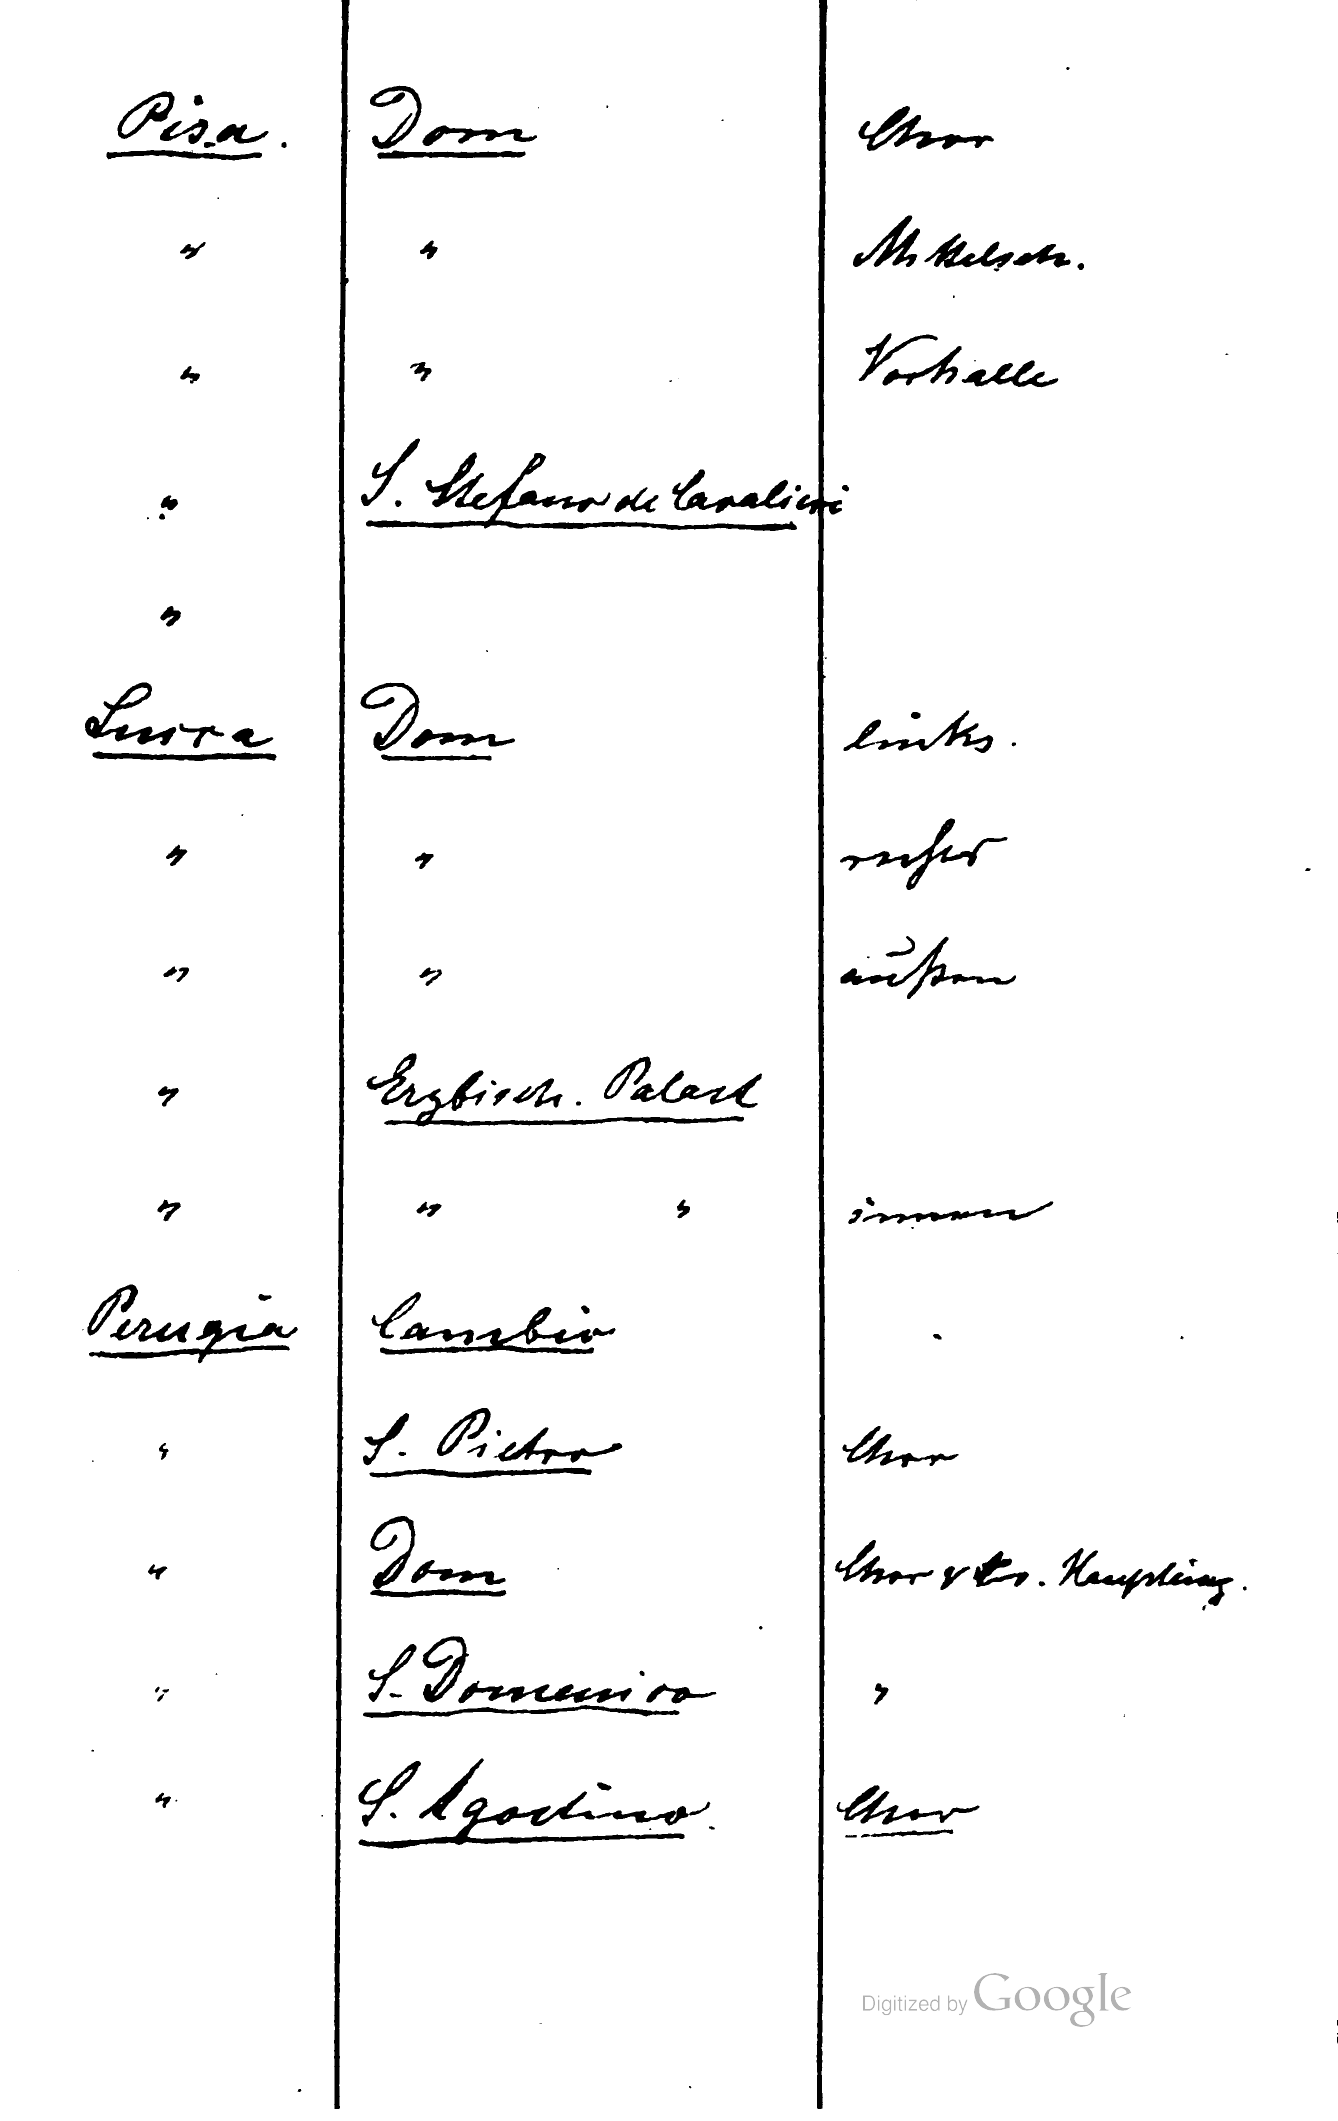 Pisa. Dom Chor
" " Mittelsch.
" " Vorhalle
" S. Stefano de Cavalieri
"
Lucca Dom links.
" " rechts
" " außen
" Erzbisch. Palast
" " " innen
Perugia Cambio
" S. Pietro Chor
" Dom Chor
" S. Domenico "
" S. Agostino Chor
Digitized by Google